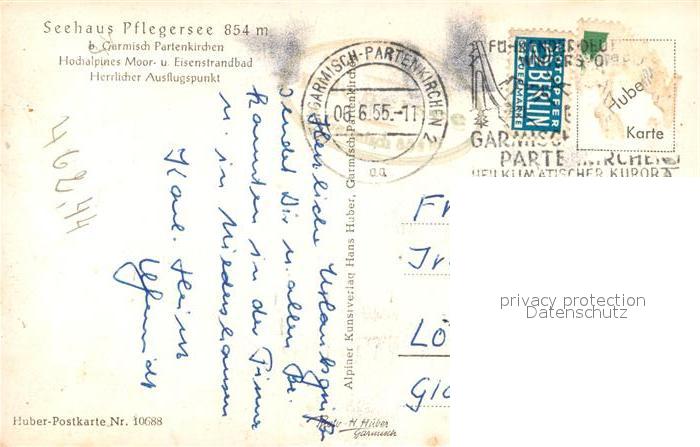 Seehaus Pflegersee 854 m
b. Garmisch Partenkirchen
Hochalpines Moor- u. Eisenstrandbad
Herrlicher Ausflugspunkt
44294
Herzliche Urlaubsgrüße
sendet Dir u. allen Be-
kannten in der Firma
u. in Niederhausen
Karl-Heinz
Huber-Postkarte Nr. 10688
Alpiner Kunstverlag Hans Huber, Garmisch-Partenkirchen
Foto-H. Huber
Garmisch
GARMISCH-PARTENKIRCHEN
06.6.55.-11
2
aa
GARMISCH
PARTENKIRCHEN
HEILKLIMATISCHER KURORT
NOTOPFER
2 BERLIN
STEUERMARKE
Huber
Karte
Fr
LÖ
privacy protection
Datenschutz